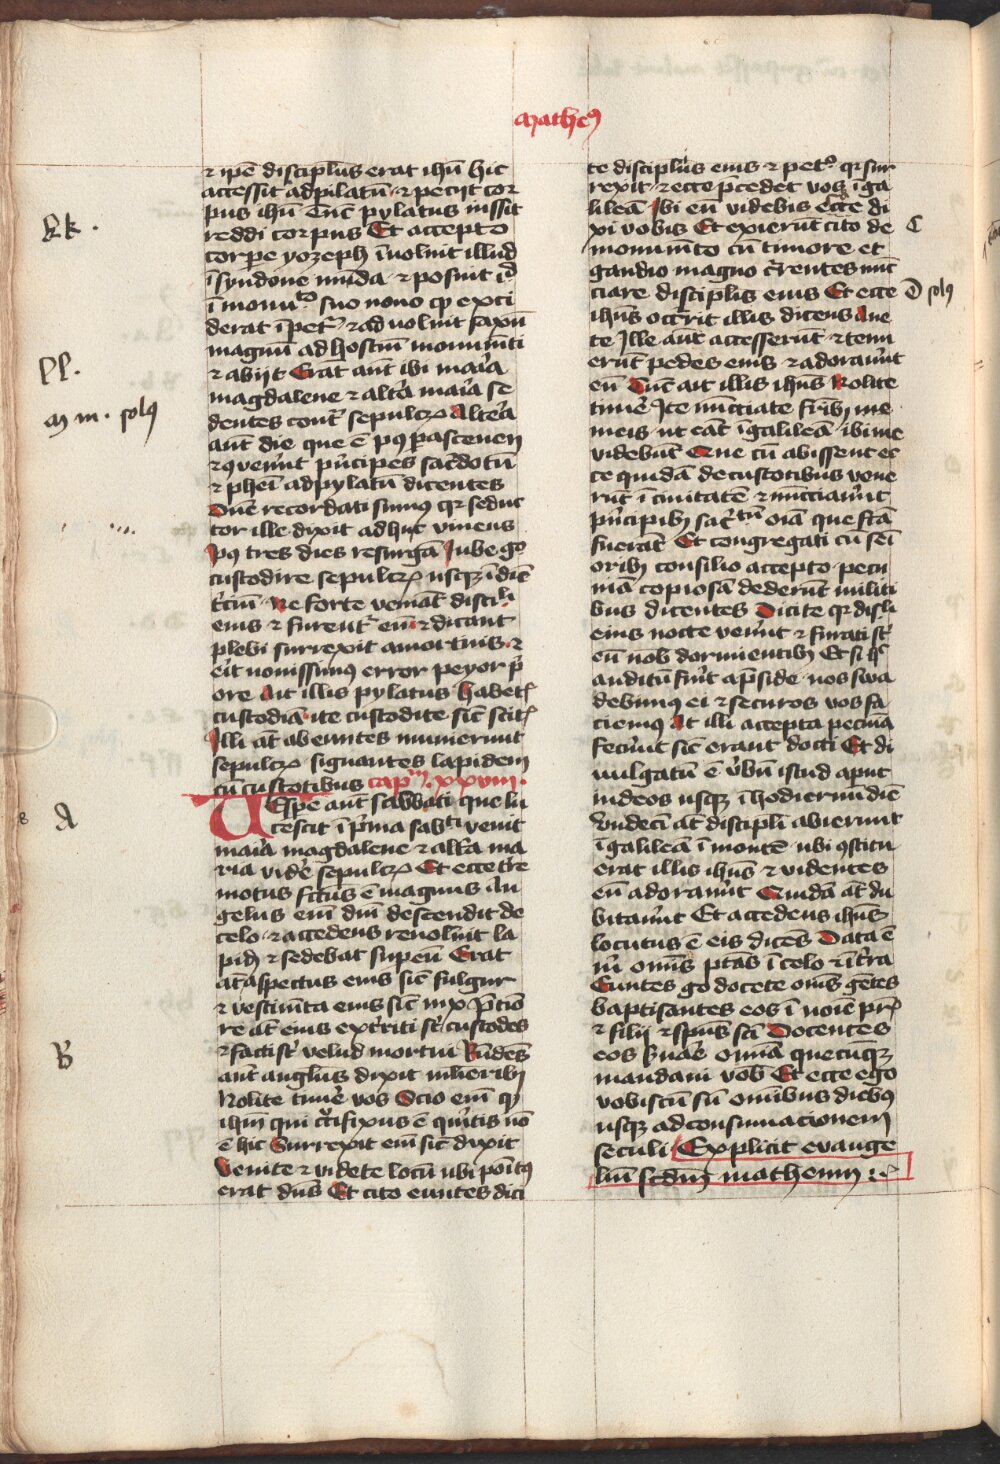 Matheus
⁊ ip̄e disciplūs erat ihū hic
accessit ad pilatū ⁊ peciit cor
pus ihū Tūc pylatus iussit
kk.
reddi corpus Et accepto
corpe yozeph īuoluit illud
ī syndone mūda ⁊ posuit id
ī monuto suo nouo qd exci
derat ī pet̄ ⁊ ad uoluit saxū
magnū ad hostiū monum̄ti
ll.
⁊ abijt Erat aūt ibi ma'ia
magdalene ⁊ alt'a ma'ia se
m m. solus
dentes cont̄ sepulcꝝ Altera
aūt die que ē pꝰ parasceuen
⁊ ꝯuen'ūt p'ncipes sac'dotū
⁊ phei ad pylatū dicentes
Dn̄e recordati sumꝰ qr seduc
tor ille dixit adhuc viuens
Pꝰ tres dies resurgā Iube gᵒ
custodire sepulcꝝ usqꝫ ī diē
t'ciū Ne forte veniāt disciꝉi
eius ⁊ furent̄ eū ⁊ dicant
plebi surrexit amortuis ⁊
eit nouissimꝰ error peyor p'
ore Ait illis pylatus habet̄
custodiā ite custodite sic̄ scit̄
Illi āt abeuntes munierunt
sepulcꝝ signantes lapidem
cū custodibus capm. xxviii.
A
Uespe aūt sabbati que lu
cescit ī p'ma sabti venit
ma'ia magdalene ⁊ alt'a ma
ria vide' sepulcꝝ Et ecce t're
motus fctus ē magnus An
gelus eni dni descendit de
celo ⁊ accedens reuoluit la
pidē ⁊ sedebat sup eū Erat
āt aspectus eius sic̄ fulgur
⁊ vestim̄ta eius sic̄ nix P̄ timo
re āt eius ext'riti st̄ custodes
B
⁊ facti st̄ velud mortui Rn̄dēs
aūt anglus dixit mlieribꝫ
Nolite time' vos Scio eni qd
ihm qui c'cifixus ē quitis nō
ē hic Surrexit eni sic̄ dixit
Venite ⁊ videte locū ubi poitꝰ
erat dn̄s Et cito euntes dici
te disciplis eius ⁊ petᵒ qr sur
rexit ⁊ ecce p̄cedet vos ī ga
lileā Ibi eū videbis ecce di
xi vobis Et exierūt cito de
C
monum̄to cū timore et
gaudio magno c'rentes nūt
ciare disciplis eius Et ecce
D solus
ihus occ'rit illis dicens Aue
te Ille aūt accesserūt ⁊ tenu
erūt pedes eius ⁊ adorau'ūt
eū Tūc ait illis ihus Nolite
time' Ite nūctiate frībꝫ me
meis ut eāt ī galileā ibi me
videbūt Que cū abissent ec
ce quidā de custotibus vene
rūt ī ciuitatē ⁊ nūcciau'ūt
p'ncipibꝫ sac'tū oīā que fcā
fuerāt Et congregati cū sei
oribꝫ consilio accepto pecu
niā copiosā dederūt militi
bus dicentes Dicite qr disꝉi
eius nocte ven'ūt ⁊ furati st̄
eū nob dormientibꝫ Et si hᵒ
auditū fu'it ap̄side nos swa
debimꝰ ei ⁊ securos vos fa
ciemꝰ At illi accepta pecuīa
fec'ūt sic̄ erant docti Et di
uulgatū ē v'bū istud aput
iudeos usqꝫ ī hodiernū diē
Vndeci āt discipli abierunt
ī galileā ī montē ubi ꝯstitu
erat illis ihus ⁊ videntes
eū adorau'ūt Quidā āt du
bitau'ūt Et accedens ihus
locutus ē eis dicēs Data ē
m' omis ptās ī celo ⁊ ī t'ra
Euntes gᵒ docete omis gētes
baptisantes eos ī noīe pr̄
⁊ filij ⁊ spūs sci Docentes
eos s'uare omia quecūqꝫ
mandaui vob Et ecce ego
vobiscū sū omibus diebꝰ
usqꝫ ad consumacionem
seculi Explicit ewange
liū scdm matheum